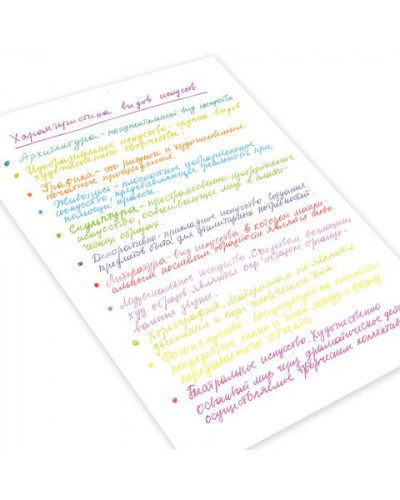 Характеристика видов искусств
Архитектура - монументальный вид искусства.
Изобразительное искусство - группа видов
художественного творчества.
Графика - это рисунок и художественные
печатные произведения.
Живопись - плоскостное изобразительное
искусство, представляющее реальность при
помощи красок.
Скульптура - пространственно-изобразительное
искусство, осваивающее мир в пласти-
ческих образах.
Декоративно-прикладное искусство. Создание
предметов быта для утилитарных потребностей.
Литература - вид искусства, в котором матери-
альным носителем образности является слово.
Музыкальное искусство. Средством воплощения
худ. образа является опр. образом организо-
ванные звуки.
Хореография. Материалом её являются
движения и позы человеческого тела
Фотоискусство воспроизводит на плоскости
посредством линий и теней контур и форму
передаваемого объекта.
Театральное искусство. Художественно
осваивает мир через драматическое действие,
осуществляемое творческим коллективом